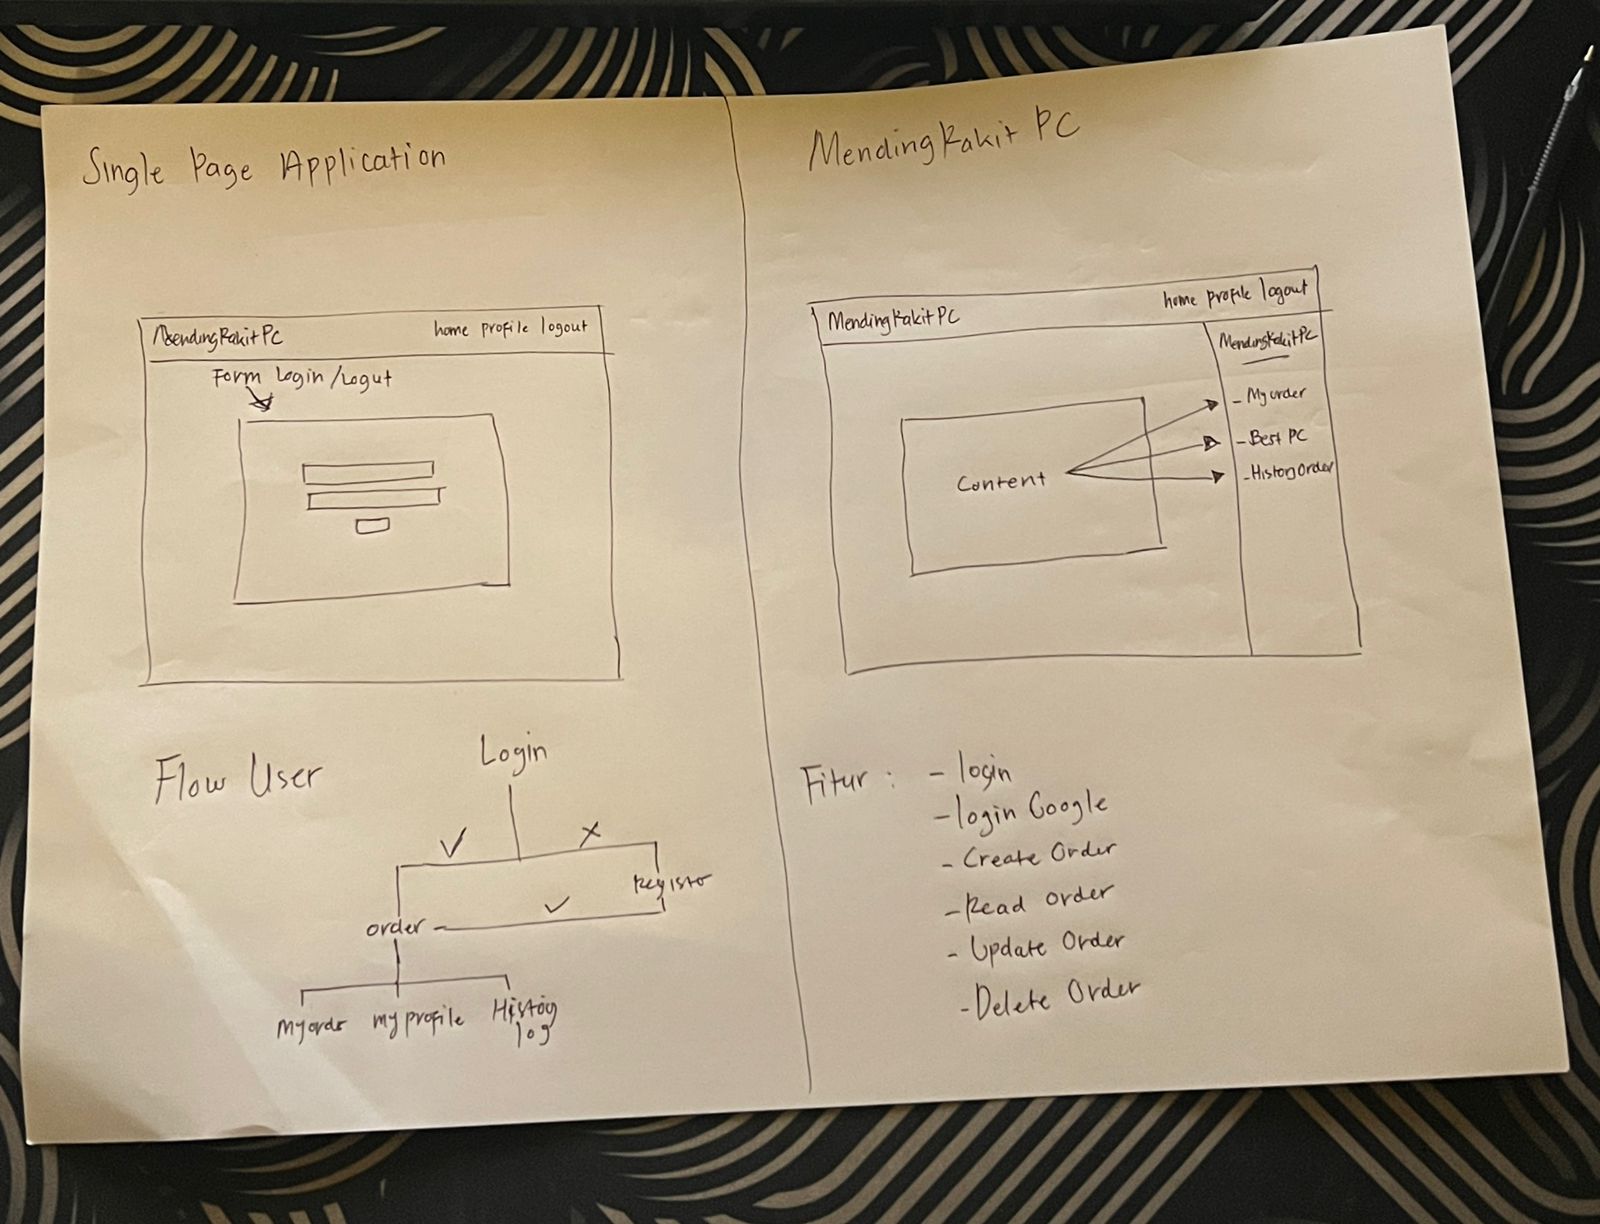 Single Page Application
MendingRakitPC
home profile logout
Form Login/Logut
Flow User
Login
✓
X
Register
✓
order
Myorder
my profile
History
log
MendingRakit PC
MendingRakitPC
home profile logout
MendingRakitPC
- My order
- Best PC
- History Order
Content
Fitur : - login
- login Google
- Create Order
- Read order
- Update Order
- Delete Order